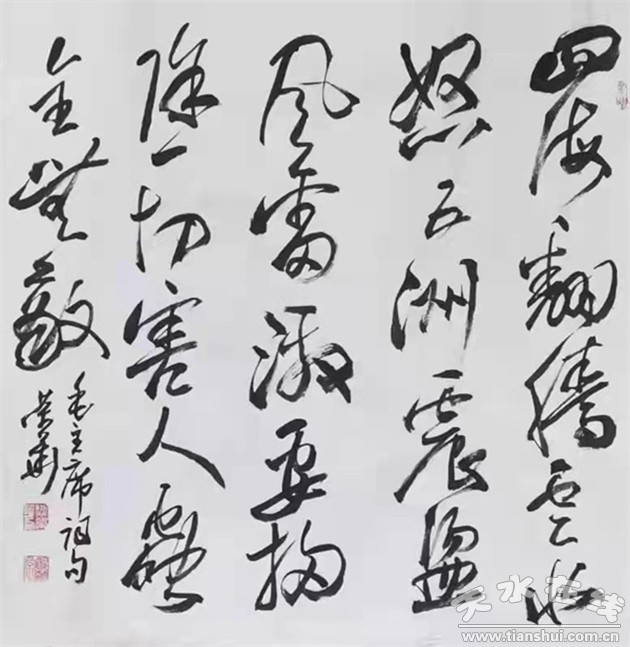 四海翻腾云水
怒五洲震盪
风雷激要扫
除一切害人虫
全無敵
毛主席词句
天水在线
www.tianshui.com.cn